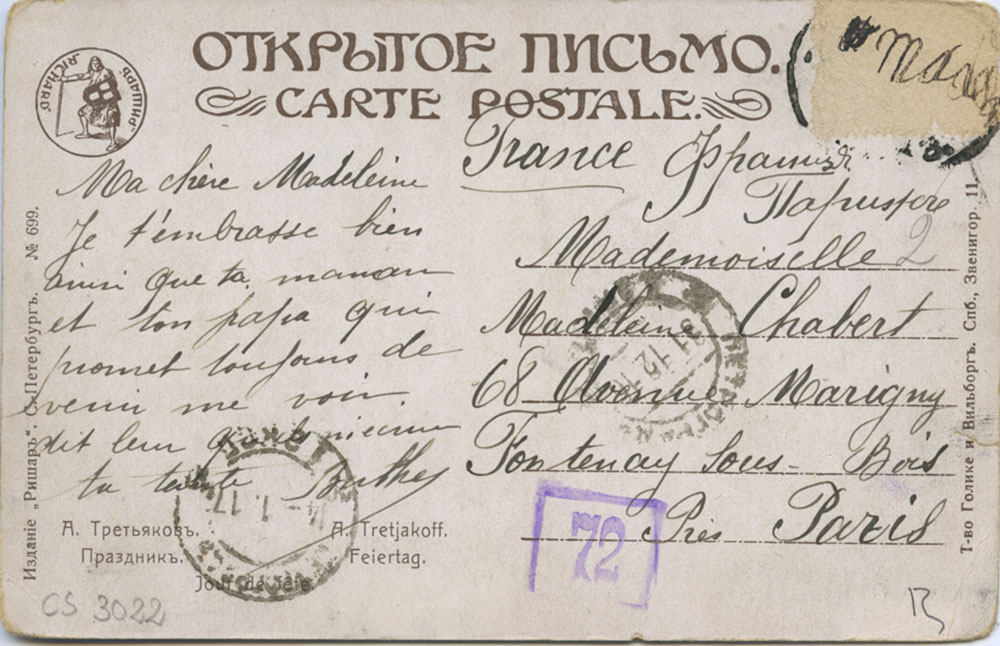 ОТКРЫТОЕ ПИСЬМО.
CARTE POSTALE.
"RICHARD"
"РИШАРЪ"
Mada
France Франція
Ma chère Madeleine
Je t'embrasse bien
ainsi que ta maman
et ton papa qui
promet toujours de
venir me voir.
dit leur qu'ils viennent
ta tante
Mademoiselle 2
Madeleine Chabert
68 Avenue Marigny
Fontenay sous-Bois
Près Paris
72
А. Третьяковъ. A. Tretjakoff.
Праздникъ. Feiertag.
Jour de fête
Изданіе „Ришаръ“. С.-Петербургъ. № 699.
Т-во Голике и Вильборгъ. Спб., Звенигор. 11
31 12
1.17
CS 3022